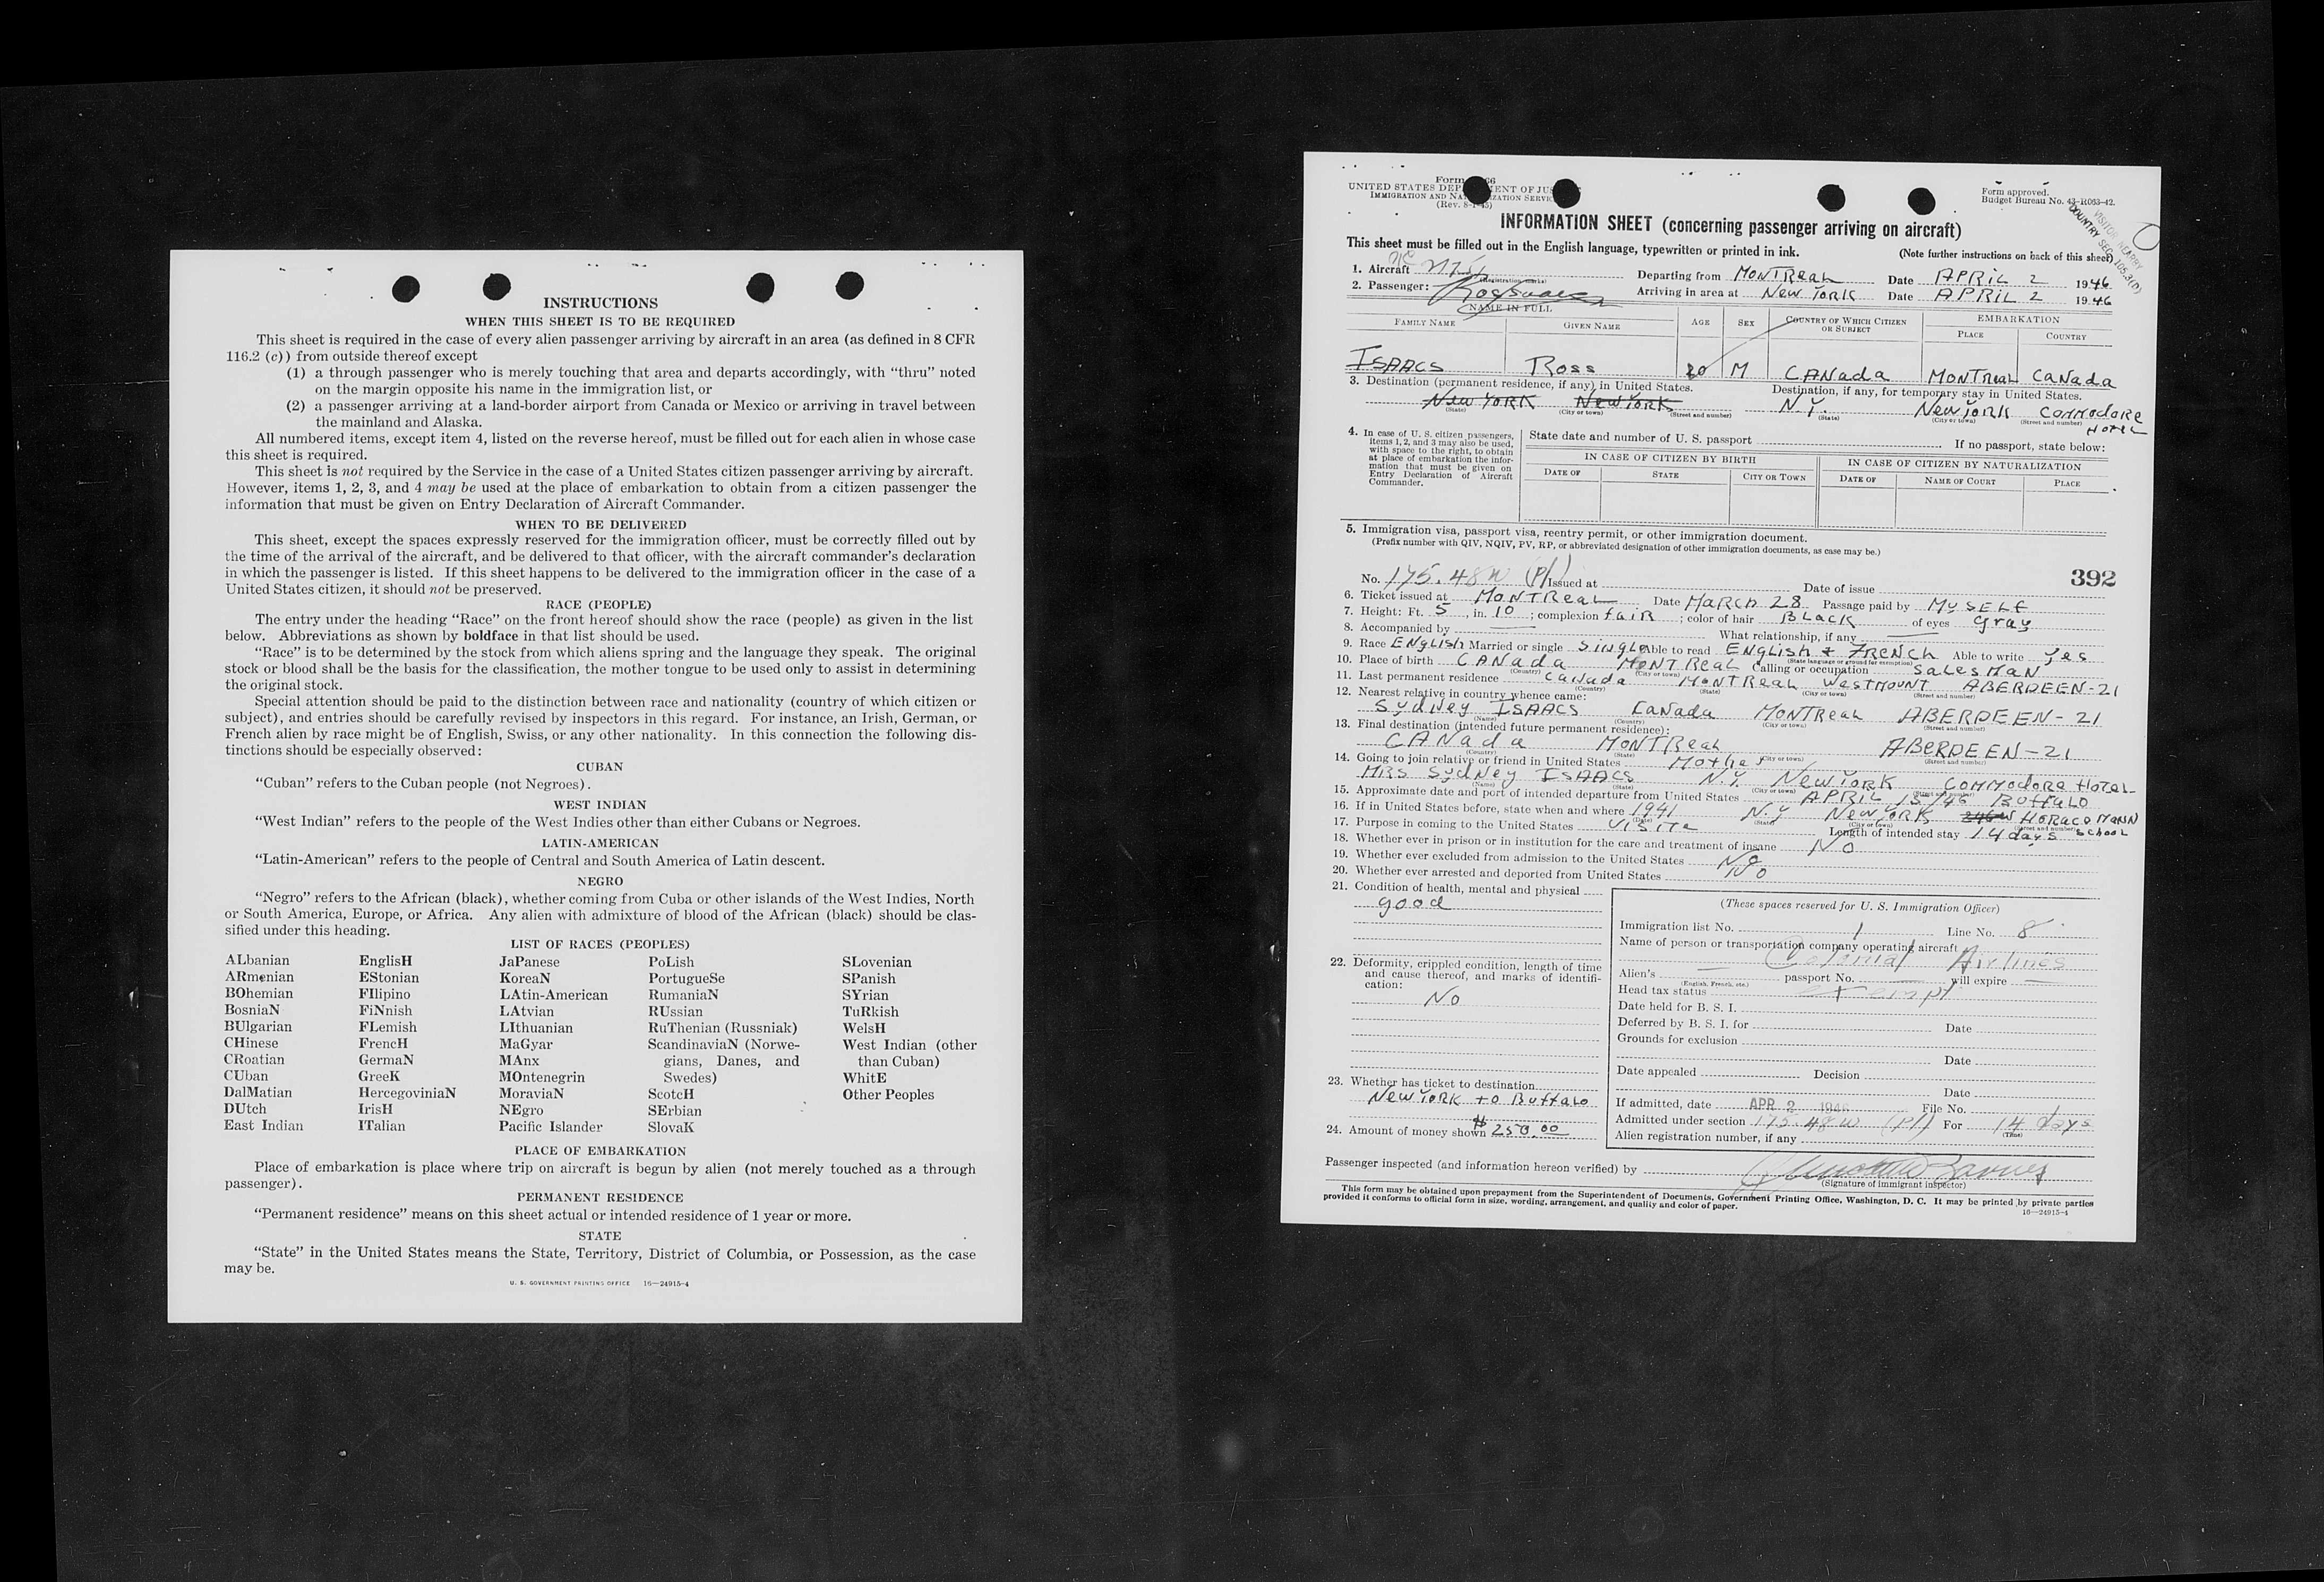 INSTRUCTIONS
WHEN THIS SHEET IS TO BE REQUIRED
This sheet is required in the case of every alien passenger arriving by aircraft in an area (as defined in 8 CFR
116.2 (c)) from outside thereof except
(1) a through passenger who is merely touching that area and departs accordingly, with “thru” noted
on the margin opposite his name in the immigration list, or
(2) a passenger arriving at a land-border airport from Canada or Mexico or arriving in travel between
the mainland and Alaska.
All numbered items, except item 4, listed on the reverse hereof, must be filled out for each alien in whose case
this sheet is required.
This sheet is not required by the Service in the case of a United States citizen passenger arriving by aircraft.
However, items 1, 2, 3, and 4 may be used at the place of embarkation to obtain from a citizen passenger the
information that must be given on Entry Declaration of Aircraft Commander.
WHEN TO BE DELIVERED
This sheet, except the spaces expressly reserved for the immigration officer, must be correctly filled out by
the time of the arrival of the aircraft, and be delivered to that officer, with the aircraft commander's declaration
in which the passenger is listed. If this sheet happens to be delivered to the immigration officer in the case of a
United States citizen, it should not be preserved.
RACE (PEOPLE)
The entry under the heading “Race” on the front hereof should show the race (people) as given in the list
below. Abbreviations as shown by boldface in that list should be used.
“Race” is to be determined by the stock from which aliens spring and the language they speak. The original
stock or blood shall be the basis for the classification, the mother tongue to be used only to assist in determining
the original stock.
Special attention should be paid to the distinction between race and nationality (country of which citizen or
subject), and entries should be carefully revised by inspectors in this regard. For instance, an Irish, German, or
French alien by race might be of English, Swiss, or any other nationality. In this connection the following dis-
tinctions should be especially observed:
CUBAN
“Cuban” refers to the Cuban people (not Negroes).
WEST INDIAN
“West Indian” refers to the people of the West Indies other than either Cubans or Negroes.
LATIN-AMERICAN
“Latin-American” refers to the people of Central and South America of Latin descent.
NEGRO
“Negro” refers to the African (black), whether coming from Cuba or other islands of the West Indies, North
or South America, Europe, or Africa. Any alien with admixture of blood of the African (black) should be clas-
sified under this heading.
LIST OF RACES (PEOPLES)
ALbanian EnglisH JaPanese PoLish SLovenian
ARmenian EStonian KoreaN PortugueSe SPanish
BOhemian FIlipino LAtin-American RumaniaN SYrian
BosniaN FiNnish LAtvian RUssian TuRkish
BUlgarian FLemish LIthuanian RuThenian (Russniak) WelsH
CHinese FrencH MaGyar ScandinaviaN (Norwe- West Indian (other
CRoatian GermaN MAnx gians, Danes, and than Cuban)
CUban GreeK MOntenegrin Swedes) WhitE
DalMatian HercegoviniaN MoraviaN ScotcH Other Peoples
DUtch IrisH NEgro SErbian
East Indian ITalian Pacific Islander SlovaK
PLACE OF EMBARKATION
Place of embarkation is place where trip on aircraft is begun by alien (not merely touched as a through
passenger).
PERMANENT RESIDENCE
“Permanent residence” means on this sheet actual or intended residence of 1 year or more.
STATE
“State” in the United States means the State, Territory, District of Columbia, or Possession, as the case
may be.
U. S. GOVERNMENT PRINTING OFFICE 16—24915-4
Form 66
UNITED STATES DEP ENT OF JUS
IMMIGRATION AND NA IZATION SERVIC
(Rev. 8-1-45)
Form approved.
Budget Bureau No. 43-R063-42.
COUNTRY SEC. 105.3(D)
INFORMATION SHEET (concerning passenger arriving on aircraft)
This sheet must be filled out in the English language, typewritten or printed in ink. (Note further instructions on back of this sheet)
1. Aircraft NC (Registration marks) Departing from MONTReaL Date APRiL 2 1946
2. Passenger: Arriving in area at New YORK Date APRiL 2 1946
NAME IN FULL
FAMILY NAME GIVEN NAME AGE SEX COUNTRY OF WHICH CITIZEN OR SUBJECT EMBARKATION
PLACE COUNTRY
ISAACS Ross 20 M CANada MONTReaL CaNada
3. Destination (permanent residence, if any) in United States. Destination, if any, for temporary stay in United States.
New YORK New York N.Y. New York COMModoRe HoTeL
(State) (City or town) (Street and number) (State) (City or town) (Street and number)
4. In case of U. S. citizen passengers, items 1, 2, and 3 may also be used, with space to the right, to obtain at place of embarkation the information that must be given on Entry Declaration of Aircraft Commander.
State date and number of U. S. passport If no passport, state below:
IN CASE OF CITIZEN BY BIRTH IN CASE OF CITIZEN BY NATURALIZATION
DATE OF STATE CITY OR TOWN DATE OF NAME OF COURT PLACE
5. Immigration visa, passport visa, reentry permit, or other immigration document.
(Prefix number with QIV, NQIV, PV, RP, or abbreviated designation of other immigration documents, as case may be.)
392
No. 175.48w (P/) Issued at Date of issue
6. Ticket issued at MONTReaL Date MaRch 28 Passage paid by MySELf
7. Height: Ft. 5, in. 10; complexion faiR; color of hair BLacK of eyes gray
8. Accompanied by What relationship, if any
9. Race ENgLish Married or single SingLe Able to read ENgLish & FRENCh Able to write Yes
(State language or ground for exemption)
10. Place of birth CANada MONTReaL Calling or occupation SaLesMaN
(Country) (City or town)
11. Last permanent residence Canada MONTReaL WesTMOUNT ABERDEEN-21
(Country) (State) (City or town) (Street and number)
12. Nearest relative in country whence came:
Sydney ISAACS CaNada MONTReaL ABERDEEN-21
(Name) (Country) (City or town) (Street and number)
13. Final destination (intended future permanent residence):
CANada MONTReaL ABERDEEN-21
(Country) (State) (City or town) (Street and number)
14. Going to join relative or friend in United States MoTheR
MRS Sydney ISAACS N.Y. New YORK COMModoRe HoTeL
(Name) (State) (City or town) (Street and number)
15. Approximate date and port of intended departure from United States APRiL 15/46 BuffaLo
16. If in United States before, state when and where 1941 N.Y New YORK HORace MaNN school
(Date) (State) (City or town) (Street and number)
17. Purpose in coming to the United States ViSiTe Length of intended stay 14 days
18. Whether ever in prison or in institution for the care and treatment of insane No
19. Whether ever excluded from admission to the United States No
20. Whether ever arrested and deported from United States No
21. Condition of health, mental and physical
good
22. Deformity, crippled condition, length of time
and cause thereof, and marks of identifi-
cation:
No
23. Whether has ticket to destination
New YORK to BuffaLo
24. Amount of money shown $ 250.00
(These spaces reserved for U. S. Immigration Officer)
Immigration list No. 1 Line No. 8
Name of person or transportation company operating aircraft
Colonial Airlines
Alien's passport No. will expire
(English, French, etc.)
Head tax status exempt
Date held for B. S. I.
Deferred by B. S. I. for Date
Grounds for exclusion
Date
Date appealed Decision
Date
If admitted, date APR 2 1946 File No.
Admitted under section 175.48w (P/) For 14 days
(Time)
Alien registration number, if any
Passenger inspected (and information hereon verified) by
(Signature of immigrant inspector)
This form may be obtained upon prepayment from the Superintendent of Documents, Government Printing Office, Washington, D. C. It may be printed by private parties
provided it conforms to official form in size, wording, arrangement, and quality and color of paper.
16—24915-4